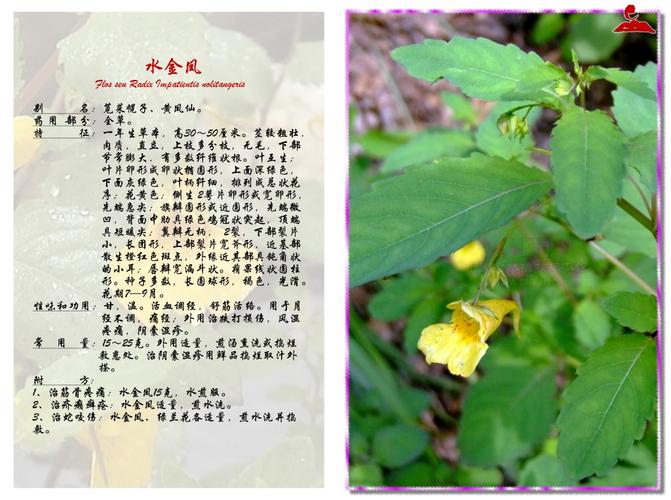 水金凤
Flos seu Radix Impatientis nolitangeris
别 名：苋菜幌子、黄凤仙。
药用部分：全草。
特 征：一年生草本，高30～50厘米。茎较粗壮，
肉质，直立，上枝多分枝，无毛，下部
节常膨大，有多数纤维状根。叶互生；
叶片卵形或卵状椭圆形，上面深绿色，
下面灰绿色，叶柄纤细，排列成总状花
序；花黄色；侧生2萼片卵形或宽卵形，
先端急尖；旗瓣圆形或近圆形，先端微
凹，背面中肋具绿色鸡冠状突起，顶端
具短喙尖；翼瓣无柄，2裂，下部裂片
小，长圆形，上部裂片宽斧形，近基部
散生橙红色斑点，外缘近基部具钝角状
的小耳；唇瓣宽漏斗状。蒴果线状圆柱
形。种子多数，长圆球形，褐色，光滑。
花期7—9月。
性味和功用：甘，温。活血调经，舒筋活络。用于月
经不调，痛经；外用治跌打损伤，风湿
疼痛，阴囊湿疹。
常 用 量：15～25克。外用适量，煎汤熏洗或捣烂
敷患处。治阴囊湿疹用鲜品捣烂取汁外
搽。
附 方：
1、治筋骨疼痛：水金凤15克，水煎服。
2、治疥癞癣疮：水金凤适量，煎水洗。
3、治蛇咬伤：水金凤、绿兰花各适量，煎水洗并捣
敷。